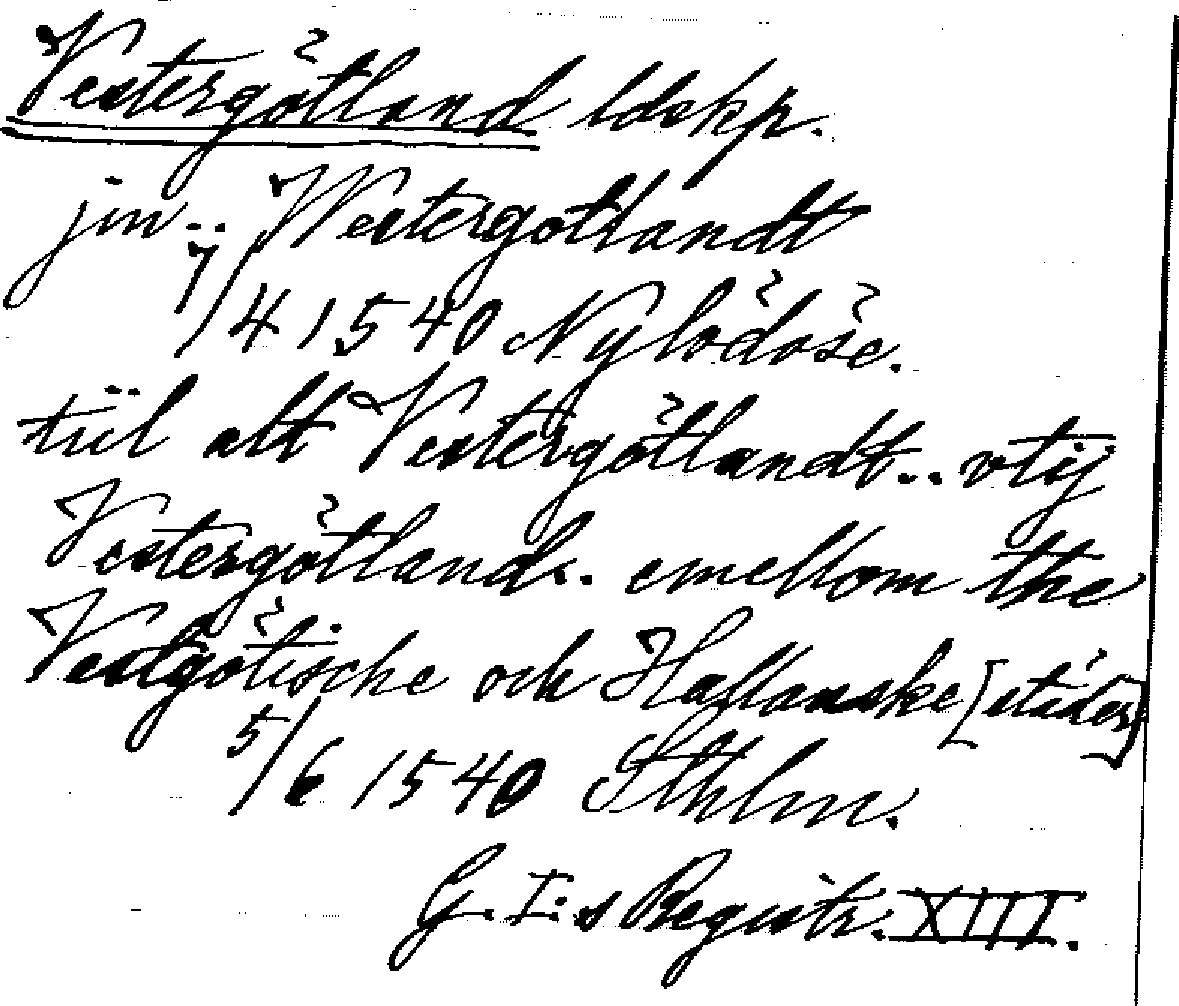 Vestergötland ldskp.
jm.. Westergotlandt
7/4 1540 Nylödöse.
tiil alt Vestergötlandt.. vtij
Vestergötland.. emellom the
Vestgötische och Hallanske [städer]
5/6 1540 Sthlm.
G. I:s Registr. XIII.